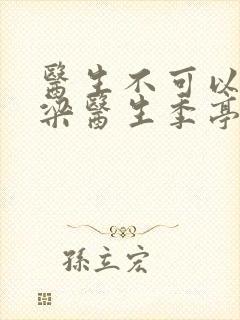 醫生不可以
梁醫生季亭
孫立宏